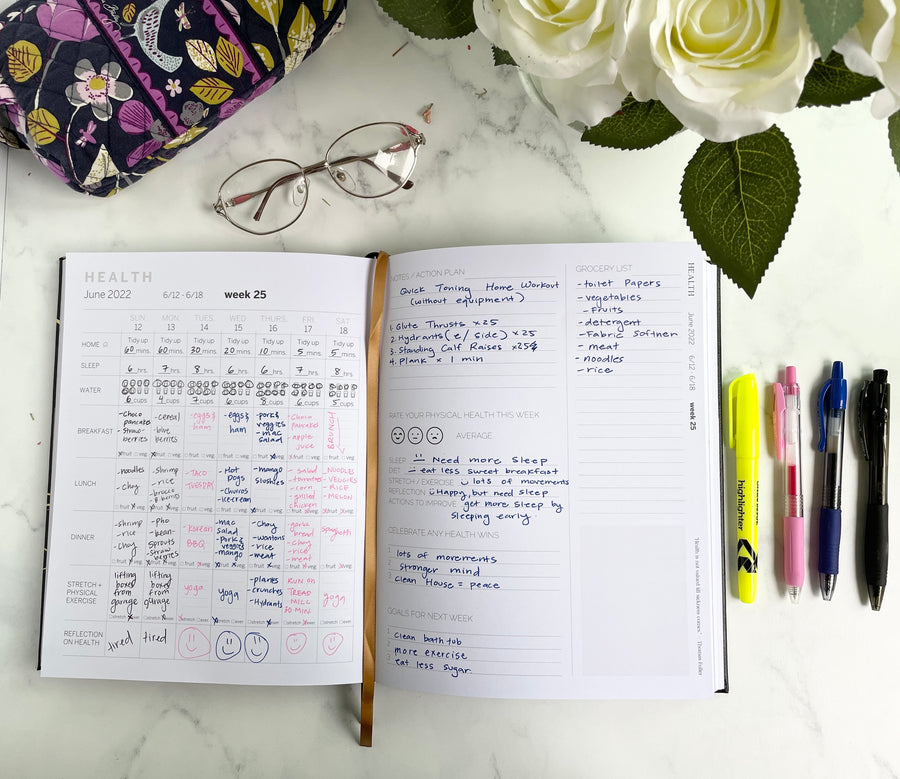 HEALTH
June 2022 6/12 - 6/18 week 25
SUN. MON. TUES. WED. THURS. FRI. SAT.
12 13 14 15 16 17 18
HOME Tidy up Tidy up Tidy up Tidy up Tidy up Tidy up Tidy up
60 mins. 60 mins. 30 mins. 20 mins. 10 mins. 5 mins. 5 mins.
SLEEP 6 hrs. 7 hrs. 8 hrs. 6 hrs. 6 hrs. 7 hrs. 8 hrs.
WATER
6 cups 4 cups 7 cups 6 cups 5 cups
BREAKFAST
- choco pancake
- straw berries
- cereal
- blue berries
- eggs & ham
- eggs & ham
- pork & veggies
- mac salad
- choco pancake
- apple juice
BRUNCH
fruit veg
LUNCH
- noodles
- chay
- shrimp
- rice
- TACO TUESDAY
- Hot Dogs
- churros
- ice cream
- mango
slushies
- salad
- tomatoes
- corn
- grilled chicken
- NOODLES
- VEGGIES
- RICE
- MELON
fruit veg
DINNER
- shrimp
- rice
- chay
- pho
- bean sprouts
- straw berries
- Korean BBQ
- mac salad
- pork & veggies
- mango
- chay
- wontons
- rice
- meat
- garlic bread
- chay
- rice
- meat
spaghetti
fruit veg
STRETCH + PHYSICAL EXERCISE
lifting boxes from garage
lifting boxes from garage
yoga
yoga
- planks
- crunches
- Hydrants
RUN on TREAD MILL 30 MIN
yoga
REFLECTION ON HEALTH tired tired
NOTES / ACTION PLAN
Quick Toning Home Workout
(without equipment)
1. Glute Thrusts x 25
2. Hydrants (e/ side) x 25
3. Standing Calf Raises x 25
4. Plank x 1 min
RATE YOUR PHYSICAL HEALTH THIS WEEK
AVERAGE
SLEEP Need more sleep
DIET - eat less sweet breakfast
STRETCH / EXERCISE lots of movements
REFLECTION Happy, but need sleep
ACTIONS TO IMPROVE get more sleep by
sleeping early.
CELEBRATE ANY HEALTH WINS
1 lots of movements
2 stronger mind
3 clean House = peace
GOALS FOR NEXT WEEK
1 clean bath tub
2 more exercise
3 eat less sugar.
GROCERY LIST
- toilet Papers
- vegetables
- Fruits
- detergent
- Fabric Softner
- meat
- noodles
- rice
HEALTH June 2022 6/12 - 6/18 week 25
"Health is not valued till sickness comes." - Thomas Fuller
highlighter